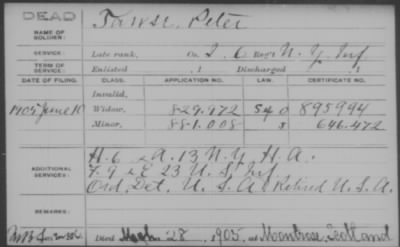 DEAD
NAME OF SOLDIER: Peter
SERVICE: Late rank, Co. I, 6 Reg't N.Y. Inf
TERM OF SERVICE: Enlisted , 1 Discharged , 1
DATE OF FILING. CLASS. APPLICATION NO. LAW. CERTIFICATE NO.
Invalid,
1905 June Widow, 829.972 895994
Minor, 881.008 646.472
ADDITIONAL SERVICES: A. 13 N.Y. H.A.
E 23 U.S. Inf
Ord. Det. U.S.A. Retired U.S.A.
REMARKS:
Died 28, 1905, at Montrose, Scotland